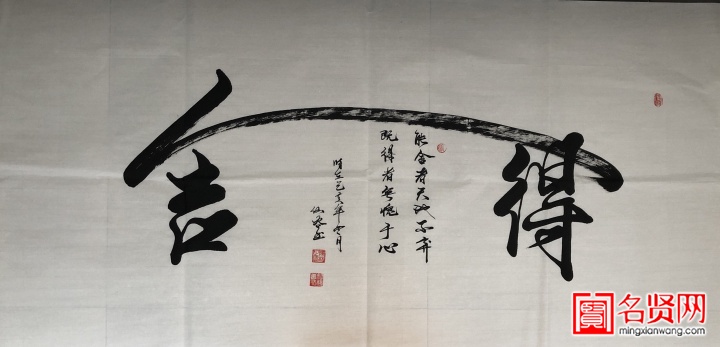 舍得
能舍者天地不弃
既得者無愧于心
时在己亥年冬月
名贤网
mingxianwang.com